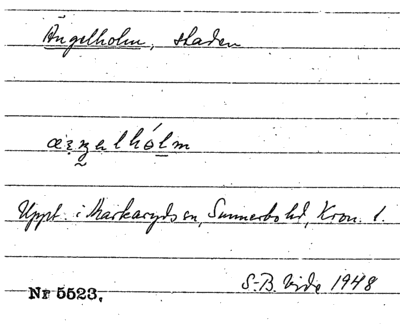 Ängelholm, staden
æŋəlhólm
Uppt. i Markaryds sn, Sunnerbo hd, Kron. l.
S.-B. Vide 1948
Nr 5523.